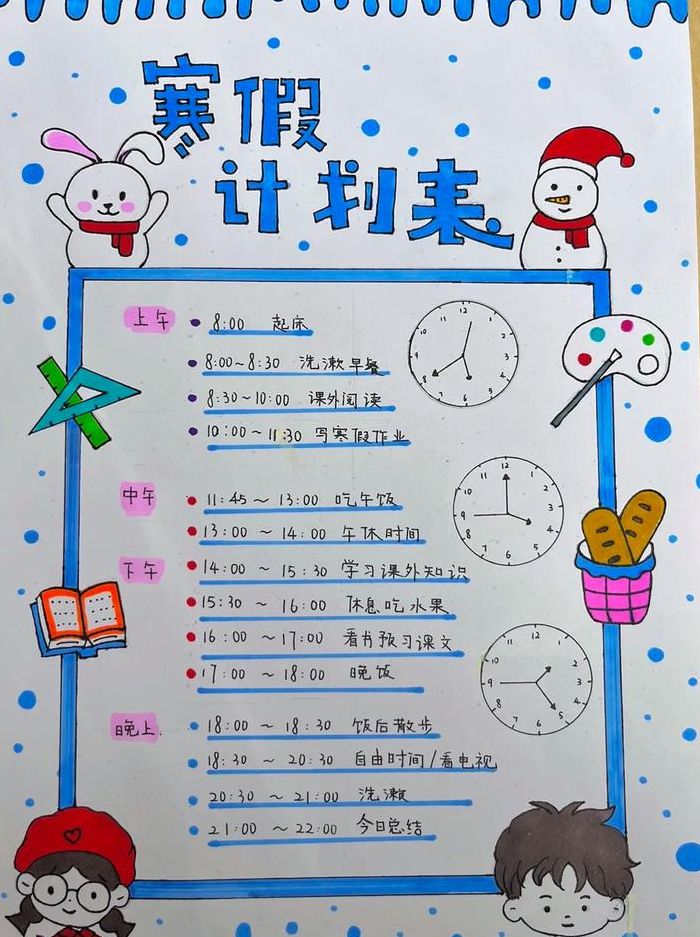 寒假
计划表
上午
8:00 起床
8:00~8:30 洗漱早餐
8:30~10:00 课外阅读
10:00~11:30 写寒假作业
中午
11:45~13:00 吃午饭
13:00~14:00 午休时间
下午
14:00~15:30 学习课外知识
15:30~16:00 休息吃水果
16:00~17:00 看书预习课文
17:00~18:00 晚饭
晚上
18:00~18:30 饭后散步
18:30~20:30 自由时间/看电视
20:30~21:00 洗漱
21:00~22:00 今日总结